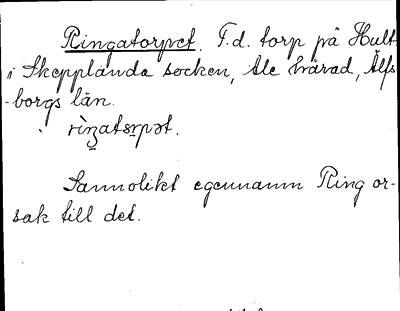 Ringatorpet. F.d. torp på Hult
i Skepplanda socken, Ale härad, Älfs
-borgs län.
rìŋatɷrpət.
Sannolikt egennamn Ring or-
sak till det.